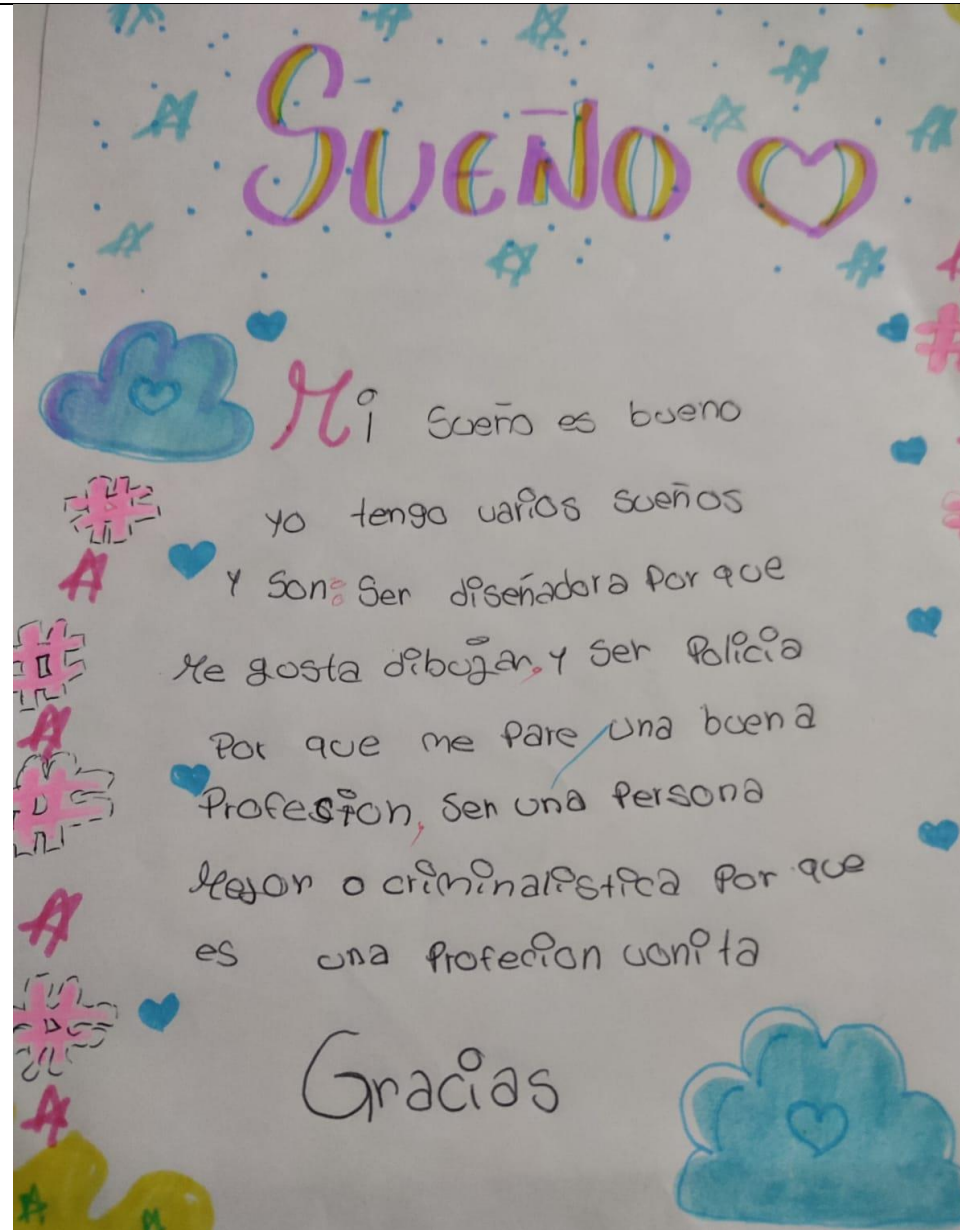 SUEÑO
Mi sueño es bueno
yo tengo varios sueños
Y son: Ser diseñadora Por que
Me gosta dibujar, Y ser Policia
Por que me Pare una buena
Profesion, Ser una Persona
Mejor o criminalistica Por que
es una Profecion vonita
Gracias